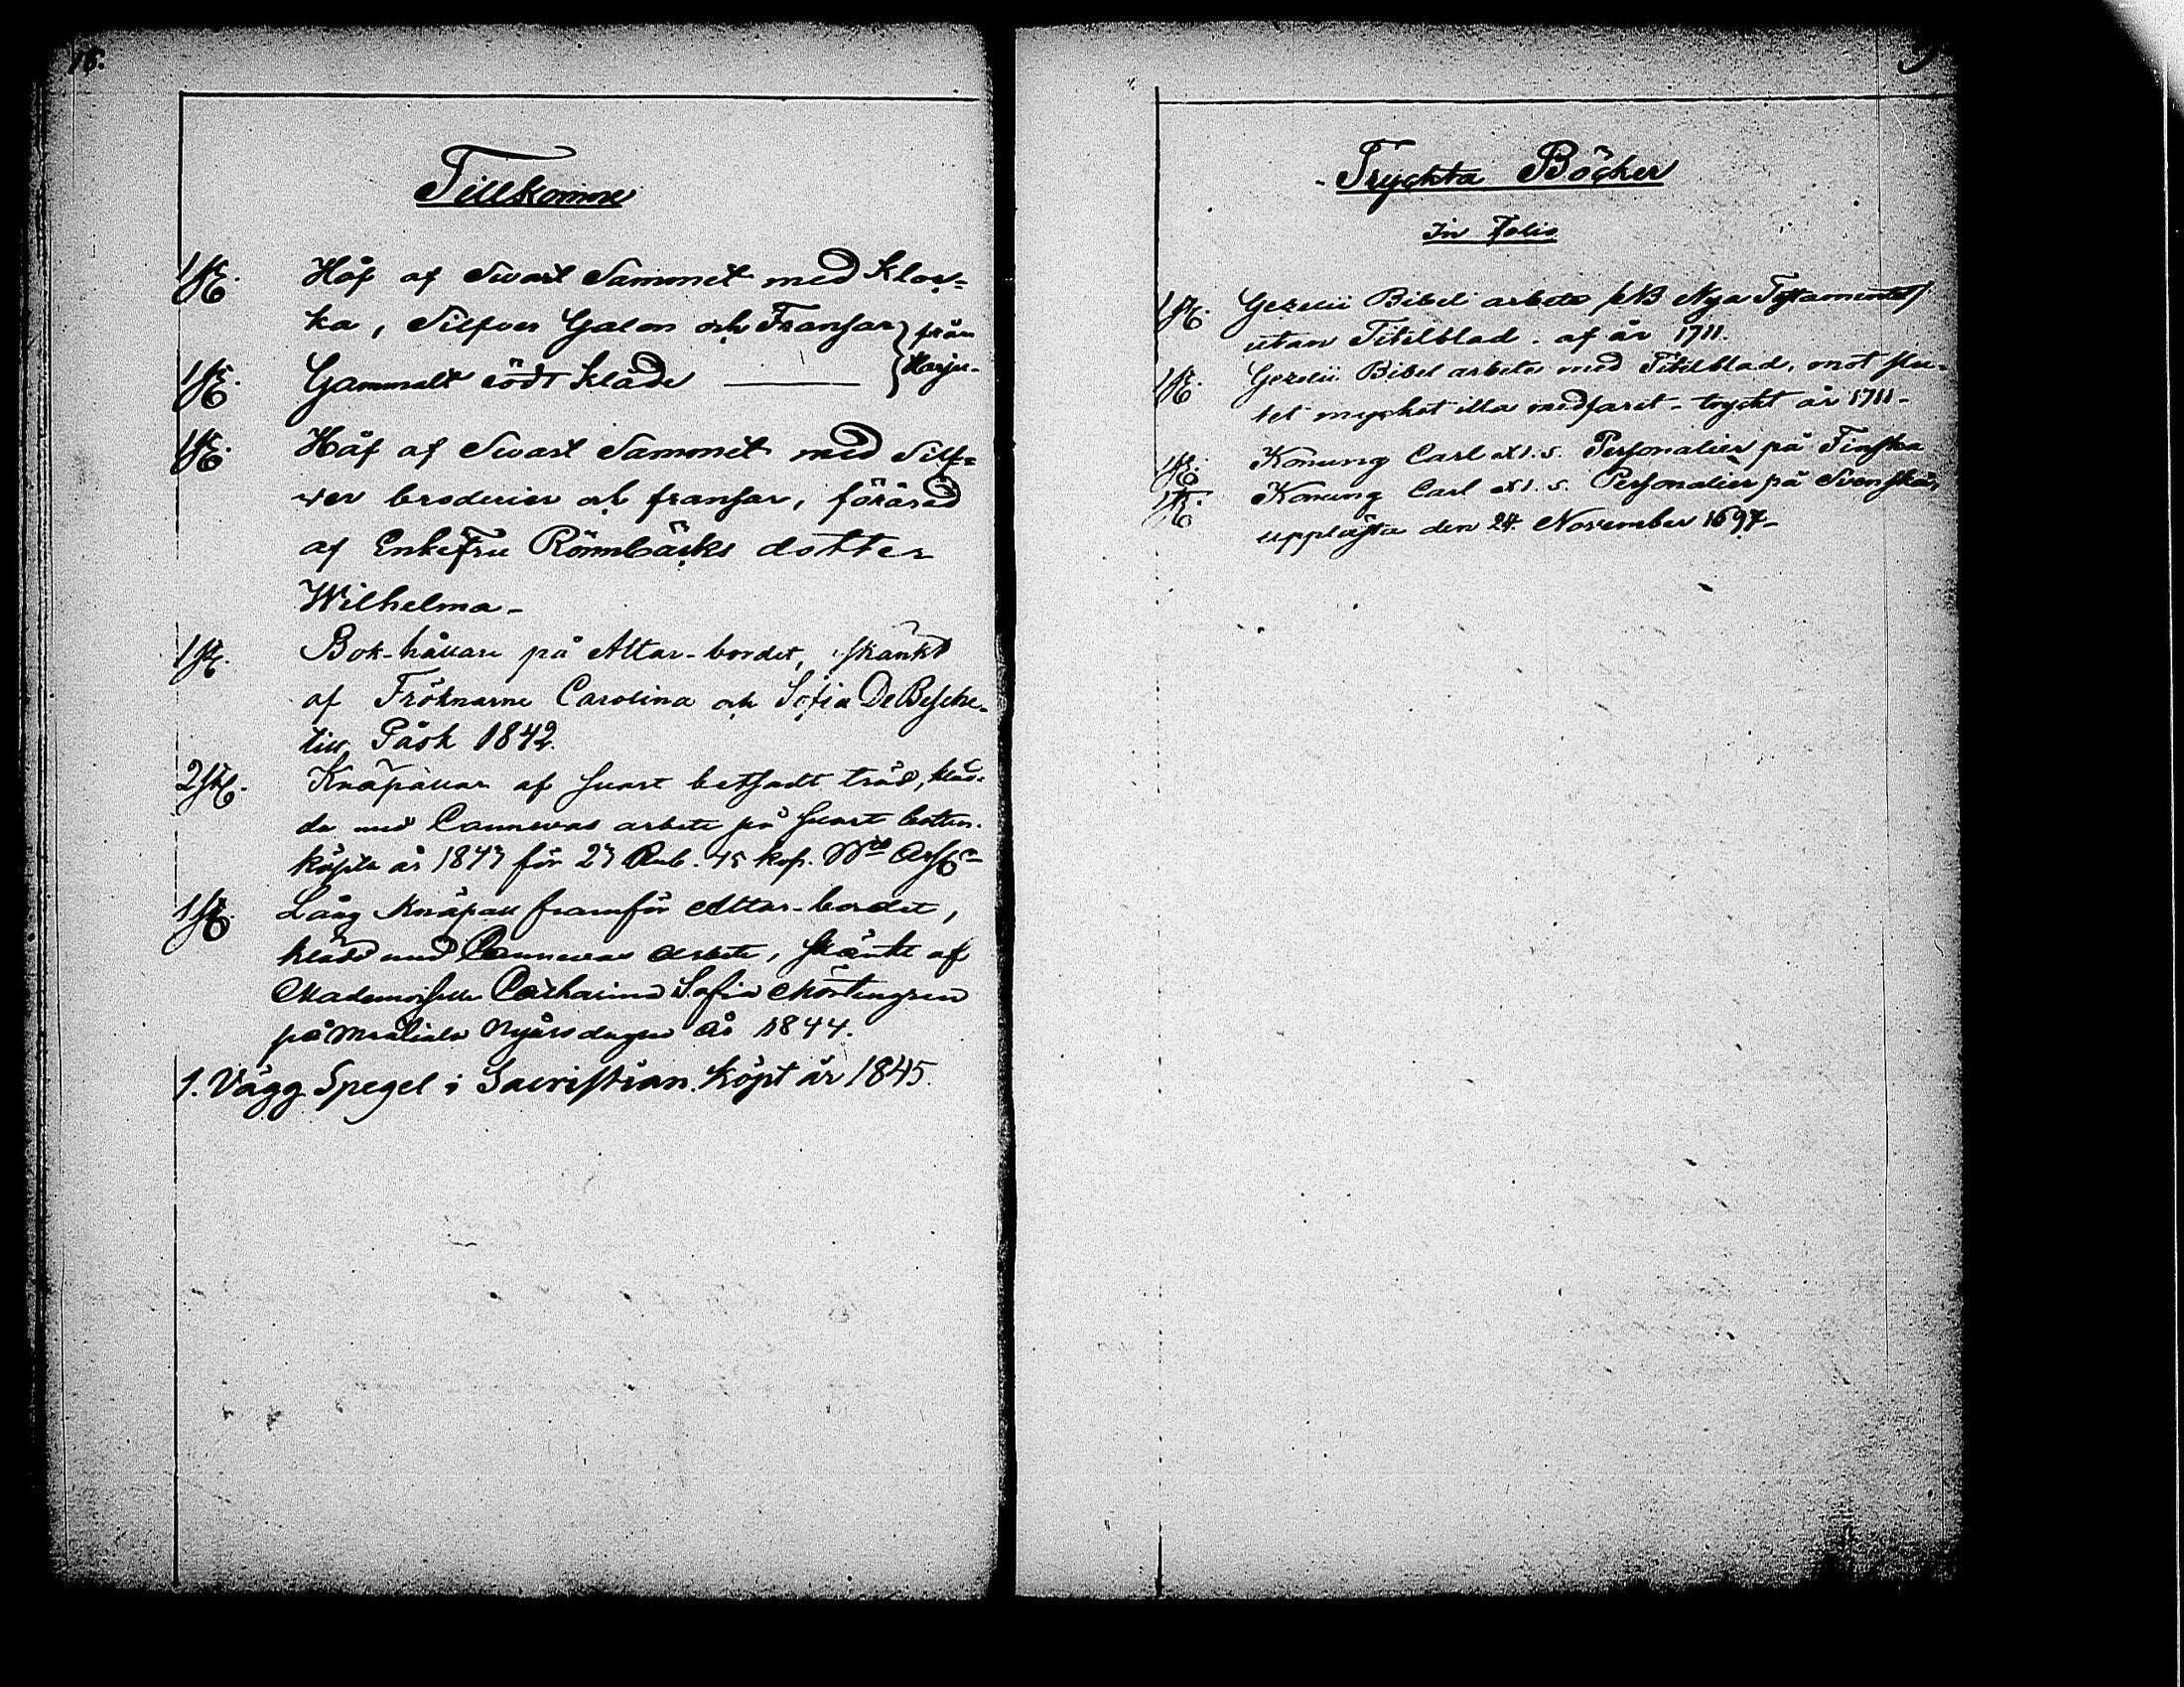 16.
Tillkomne
1 st. Håf af Swart Sammet med Kloc=
ka, Silfver Galon och Fransar } från
1 st. Gammalt rödt kläde ——— } Harju-
1 st. Håf af Swart Sammet med Silf=
wer broderier och fransar, förärad
af Enkefru Rönnbäcks dotter
Wilhelma-
1 st. Bok-hållare på Altar-bordet, skänkt
af Fröknarne Carolina och Sofia De Besche-
till Påsk 1842.
2 st. Knäpallar af svart betsadt träd, kläd-
da med Cannevas arbete på svart botten.
köpta år 1843 för 23 Rub. 45 kop. Bco Ass.
1 st. Lång Knäpall framför Altar-bordet,
klädd med Cannevas arbete, skänkt af
Mademoiselle Catharina Sofia Mörtengren
på Nyårsdagen År 1844.
1. Vägg Spegel i Sacristian. Köpt år 1845.
Tryckta Böcker
In Folio
1 st. Gezelii Bibel arbete (NB Nya Testamentet)
utan Titelblad. af år 1711.
1 st. Gezelii Bibel arbete med Titelblad, mot slu-
tet mycket illa medfaret - tryckt år 1711-
1 st. Konung Carl XI.s. Personalier på Finska
1 st. Konung Carl XI.s. Personalier på Svenska,
upplästa den 24 November 1697-